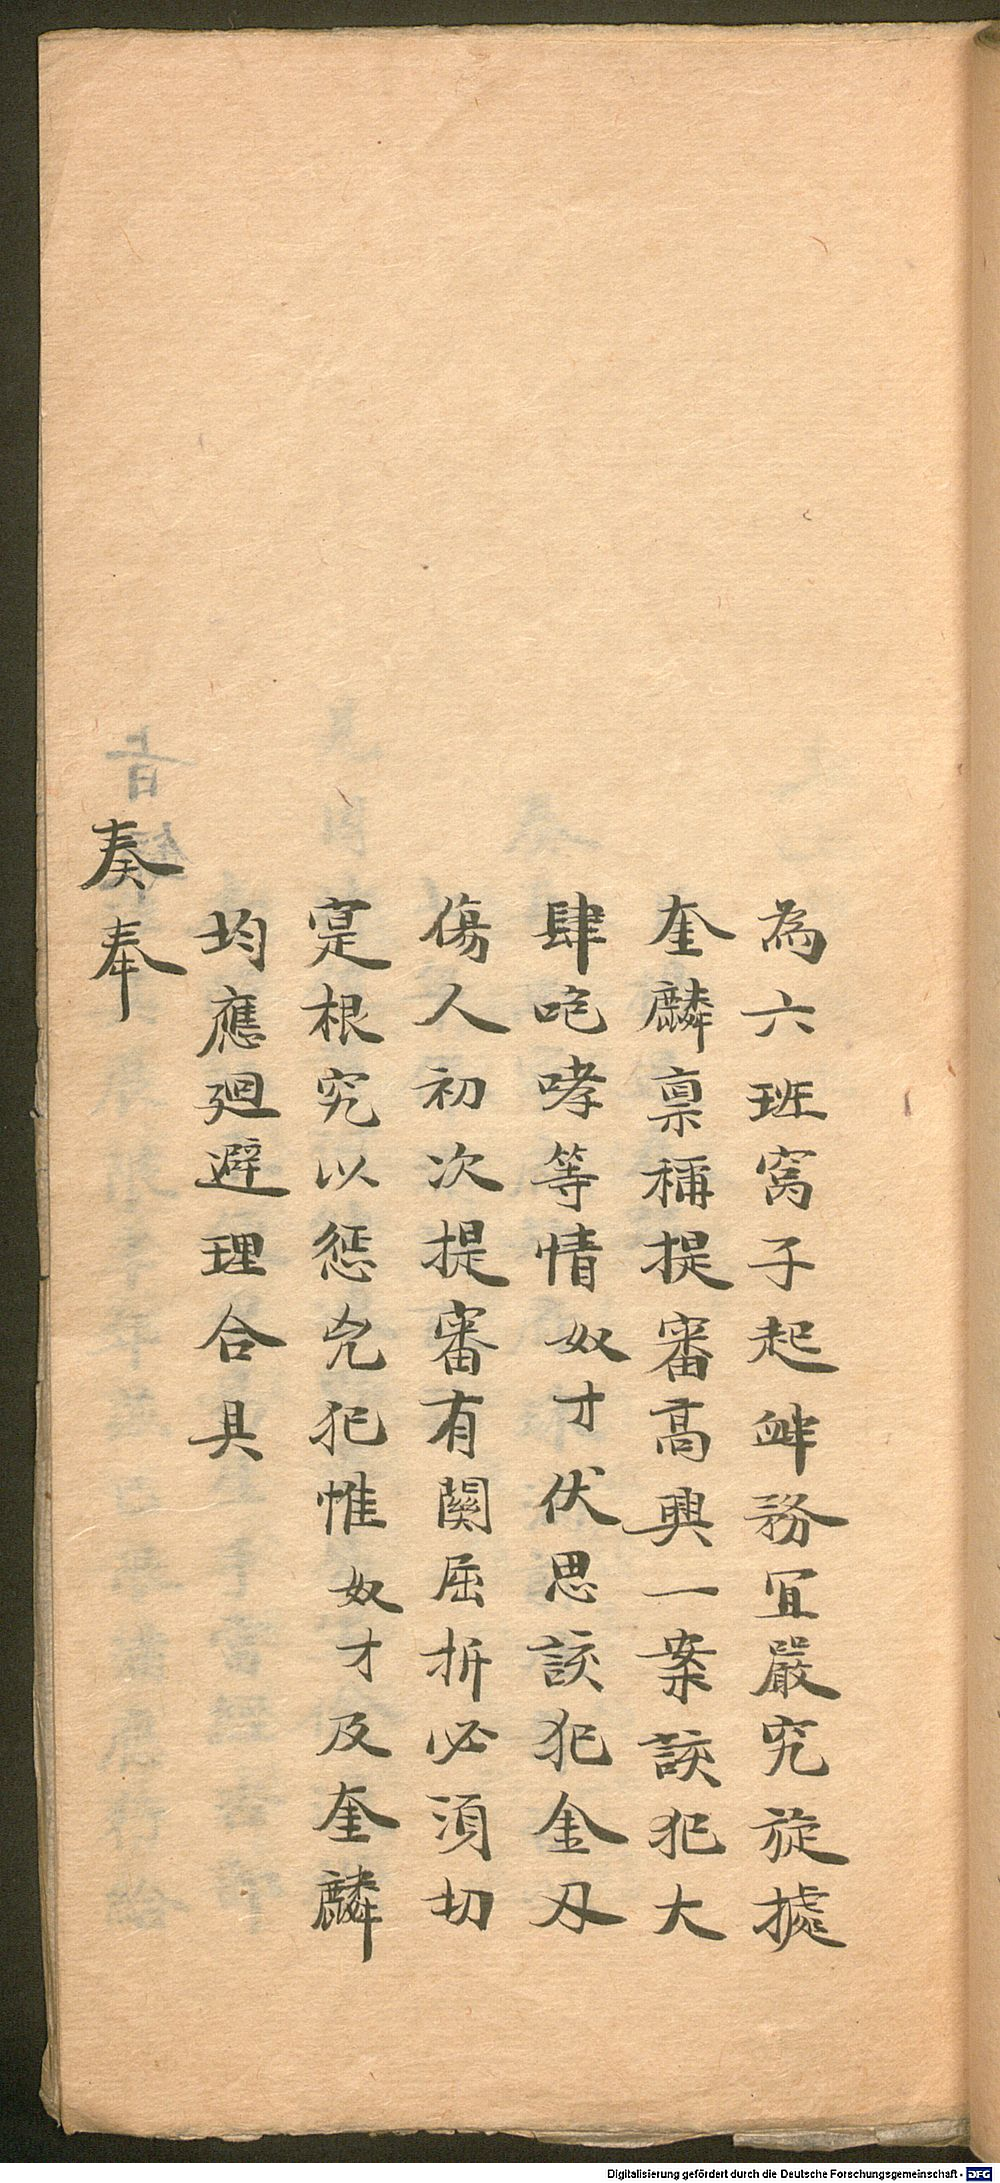 為六班窩子起衅務宜嚴究旋據
奎麟禀稱提審高興一案該犯大
肆咆哮等情奴才伏思該犯金刃
傷人初次提審有關屈折必須切
寔根究以懲兇犯惟奴才及奎麟
均應廻避理合具
奏奉
Digitalisierung gefördert durch die Deutsche Forschungsgemeinschaft - DFG